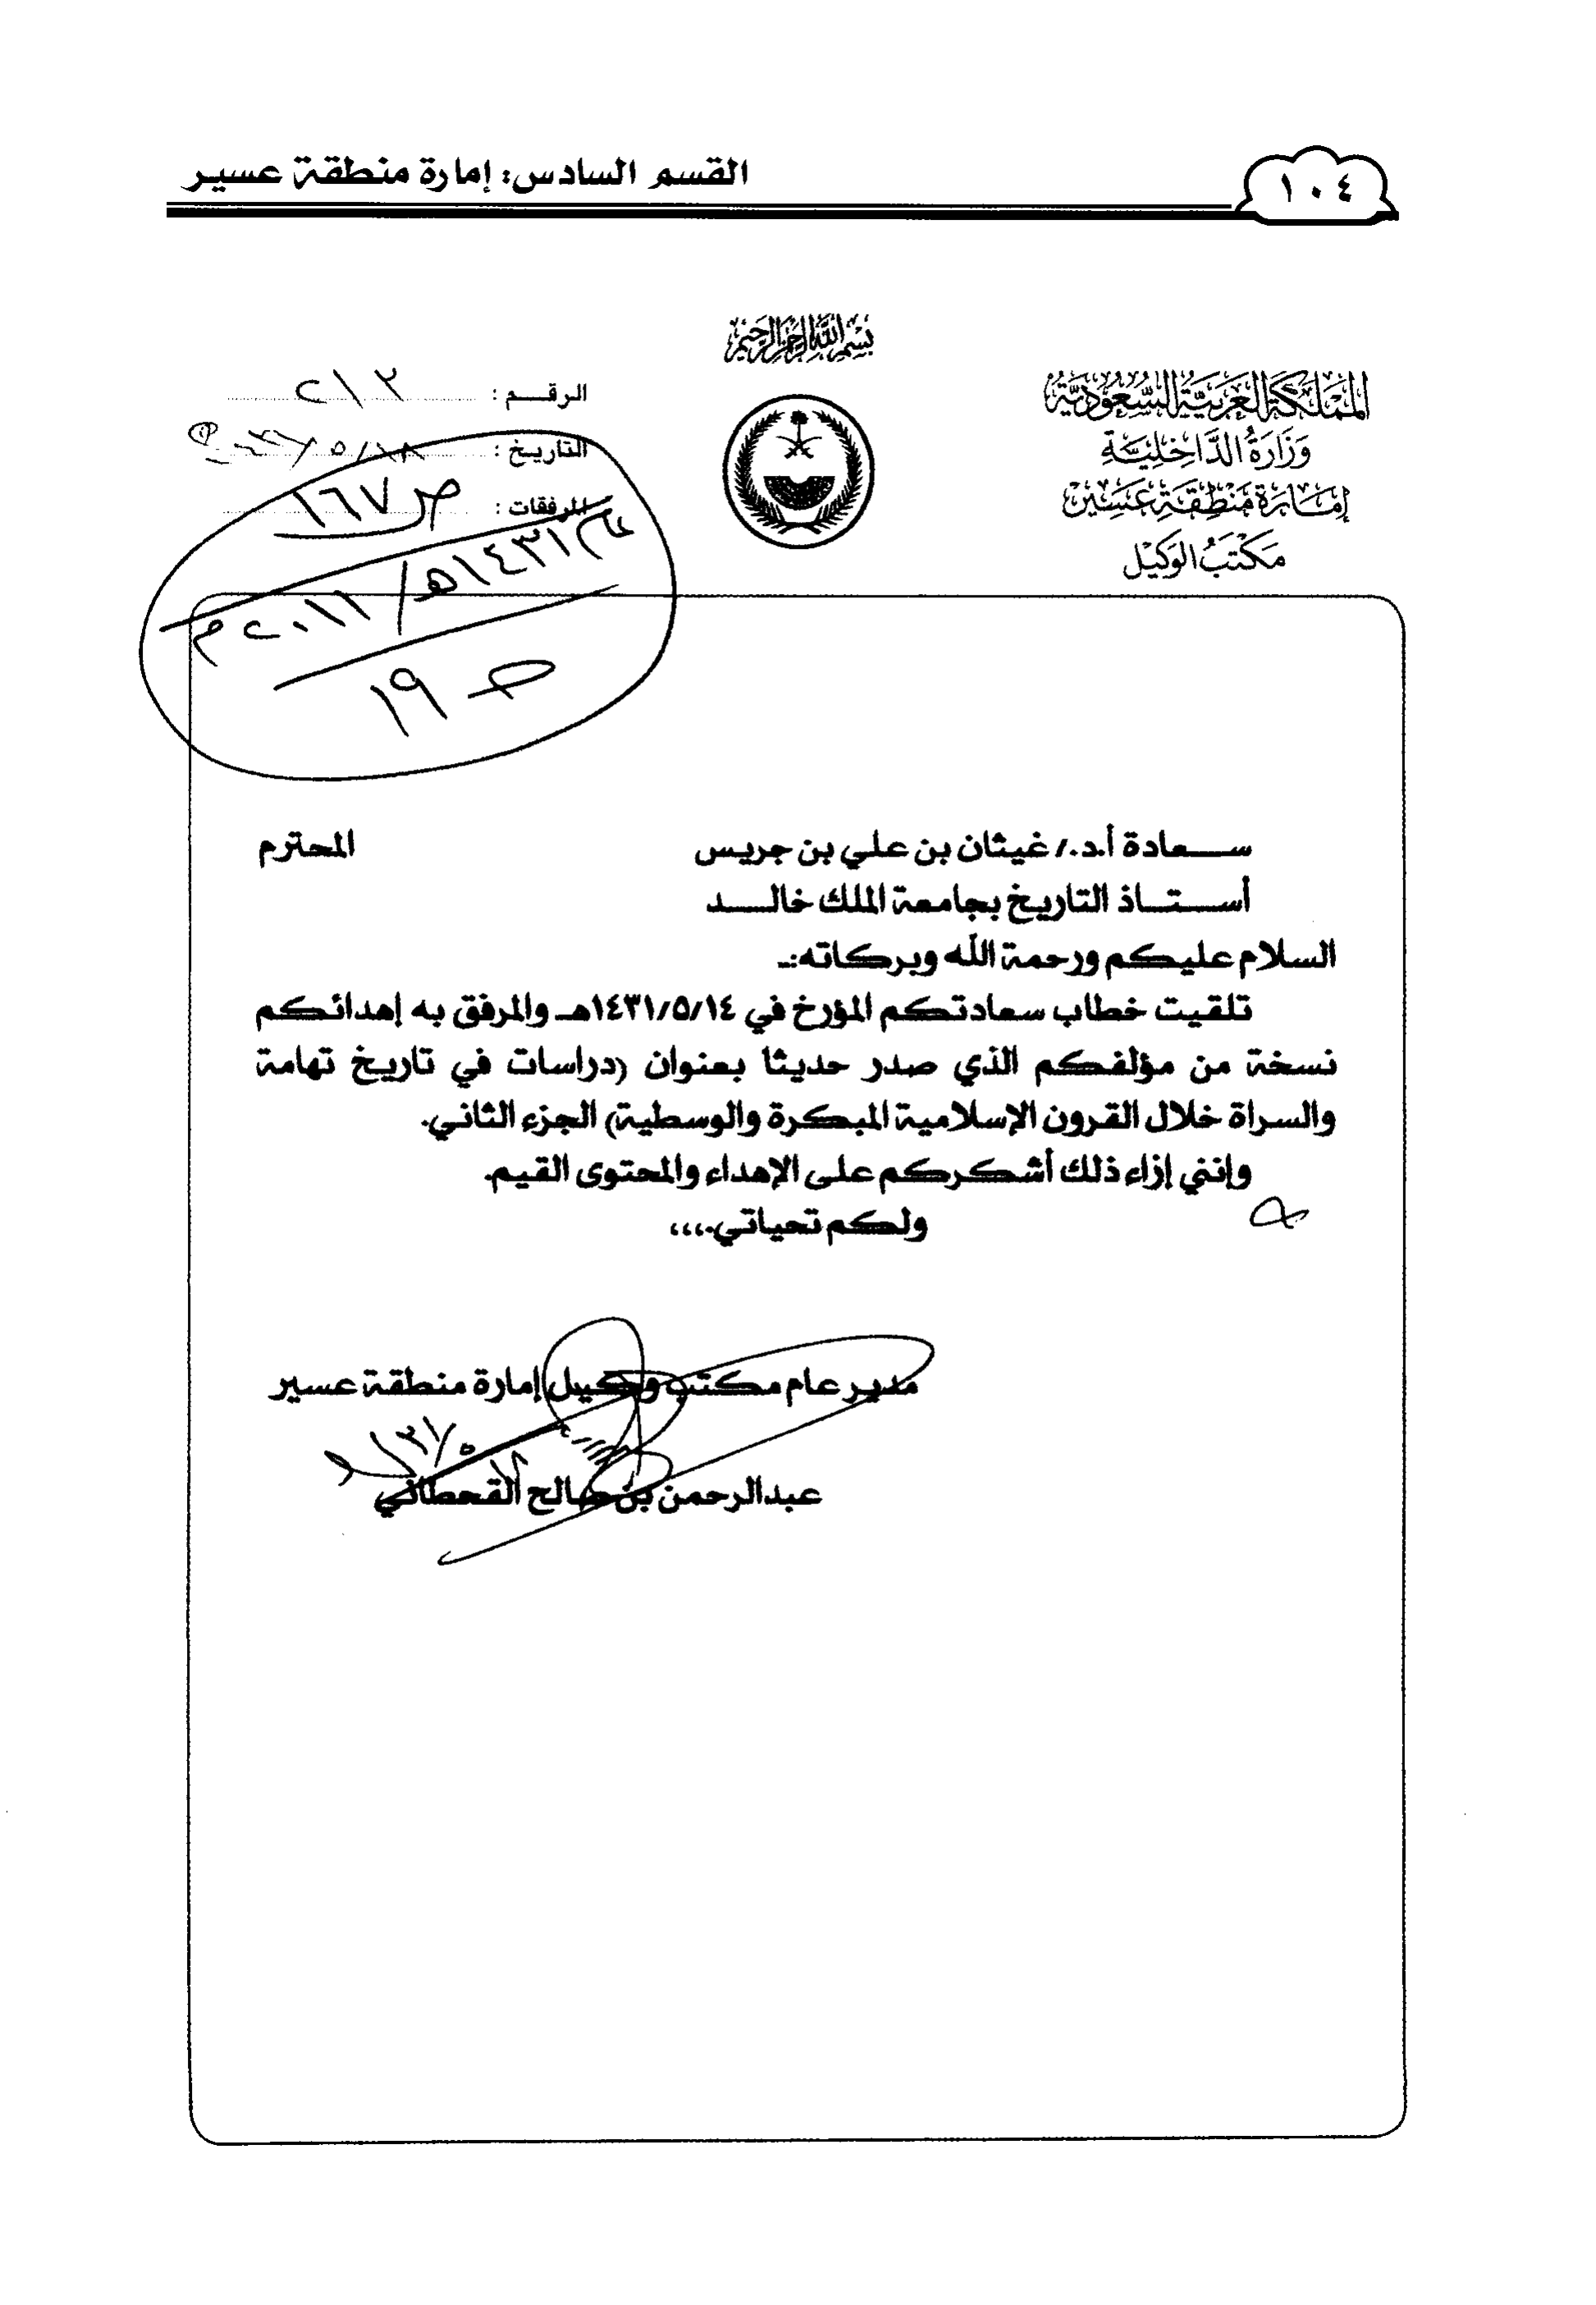 القسم السادس: إمارة منطقة عسير
١٠٤
بسم الله الرحمن الرحيم
المملكة العربية السعودية
وزارة الداخلية
إمارة منطقة عسير
مكتب الوكيل
الرقم :
التاريخ :
المرفقات :
ص ١٦٧
١٤٣١هـ / ٢٠١١م
ص ١٩
سعادة أ.د./ غيثان بن علي بن جريس المحترم
أستاذ التاريخ بجامعة الملك خالد
السلام عليكم ورحمة الله وبركاته:ـ
تلقيت خطاب سعادتكم المؤرخ في ١٤٣١/٥/١٤هـ والمرفق به إهدائكم
نسخة من مؤلفكم الذي صدر حديثا بعنوان (دراسات في تاريخ تهامة
والسراة خلال القرون الإسلامية المبكرة والوسطية) الجزء الثاني.
وإنني إزاء ذلك أشكركم على الإهداء والمحتوى القيم.
ولكم تحياتي.,,,
مدير عام مكتب وكيل إمارة منطقة عسير
عبدالرحمن بن صالح القحطاني